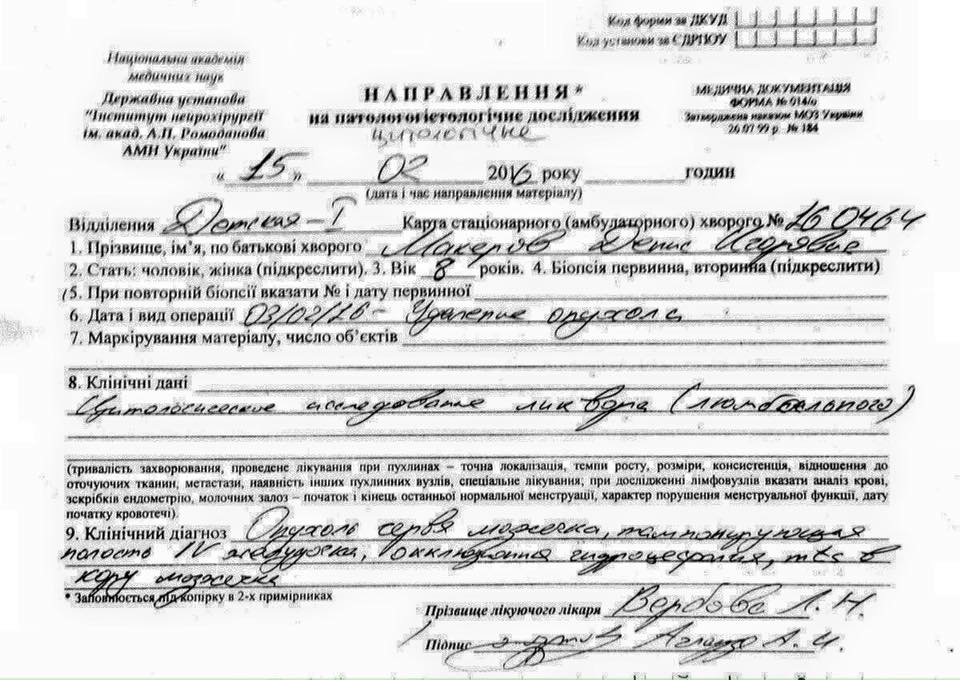 Код форми за ДКУД
Код установи за ЄДРПОУ
Національна академія
медичних наук
Державна установа
"Інститут нейрохірургії
ім. акад. А.П. Ромоданова
АМН України"
НАПРАВЛЕННЯ*
на патологогістологічне дослідження
цитологічне
МЕДИЧНА ДОКУМЕНТАЦІЯ
ФОРМА № 014/о
Затверджена наказом МОЗ України
26.07.99 р. № 184
« 15 » 02 2016 року годин
(дата і час направлення матеріалу)
Відділення Детская-I Карта стаціонарного (амбулаторного) хворого № 160464
1. Прізвище, ім’я, по батькові хворого Макеров Денис Игоревич
2. Стать: чоловік, жінка (підкреслити). 3. Вік 8 років. 4. Біопсія первинна, вторинна (підкреслити)
5. При повторній біопсії вказати № і дату первинної
6. Дата і вид операції 03/02/16 - Удаление опухоли
7. Маркірування матеріалу, число об’єктів
8. Клінічні дані
Цитологическое исследование ликвора (люмбального)
(тривалість захворювання, проведене лікування при пухлинах – точна локалізація, темпи росту, розміри, консистенція, відношення до
оточуючих тканин, метастази, наявність інших пухлинних вузлів, спеціальне лікування; при дослідженні лімфовузлів вказати аналіз крові,
зскрібків ендометрію, молочних залоз – початок і кінець останньої нормальної менструації, характер порушення менструальної функції, дату
початку кровотечі).
9. Клінічний діагноз Опухоль червя мозжечка, тампонирующая
полость IV желудочка, окклюзионная гидроцефалия, mts в
кору мозжечка
* Заповнюється під копірку в 2-х примірниках
Прізвище лікуючого лікаря Вербова Л. Н.
Підпис А. И.